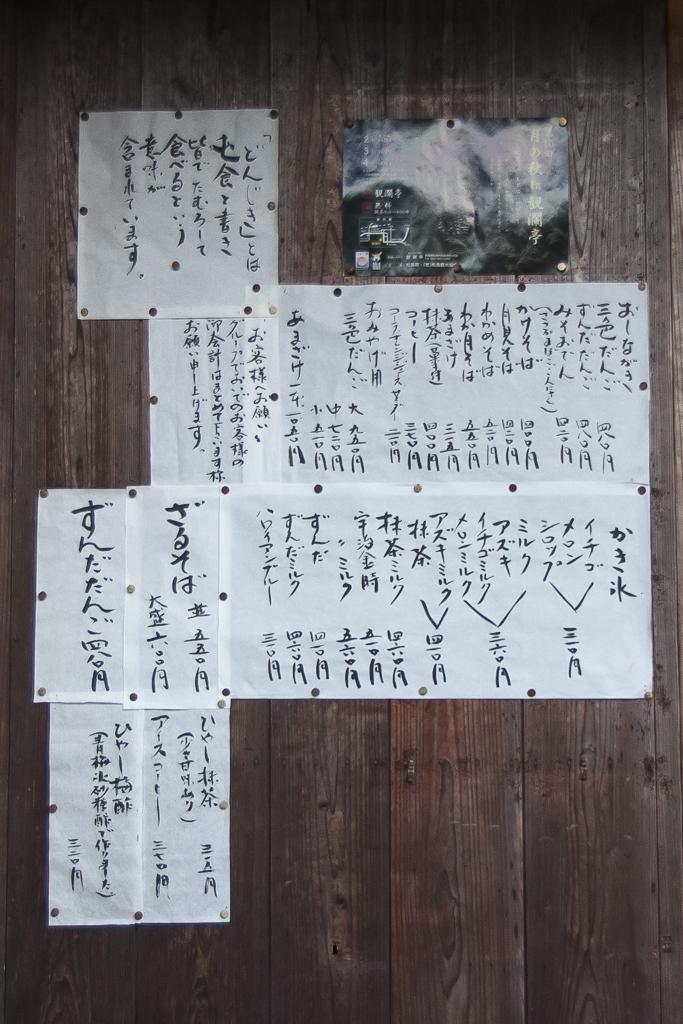 「どんじき」とは
屯食と書き
皆でたむろして
食べるという
意味が
含まれています。
月の秋
観瀾亭
観瀾亭
無料
おしながき
三色だんご 四八〇円
ずんだだんご 四八〇円
みそおでん 四二〇円
かけそば 四〇〇円
月見そば 四五〇円
わかめそば 五二〇円
わか月そば 五五〇円
あまざけ 三一五円
抹茶(菓子付) 四〇〇円
コーヒー 三七〇円
おみやげ用
三色だんご 大 九五〇円
中 七二〇円
小 五一〇円
あまざけ一本 一〇五〇円
お客様へお願い
グループでおいでのお客様の
御会計はまとめて下さいます様
お願い申し上げます。
かき氷
イチゴ
メロン 三一〇円
シロップ
ミルク
アズキ 三六〇円
イチゴミルク
メロンミルク
アズキミルク 四一〇円
抹茶
抹茶ミルク 四六〇円
宇治金時 五一〇円
〃ミルク 五六〇円
ずんだ 四一〇円
ずんだミルク 四六〇円
ハワイアンブルー 三一〇円
ざるそば 並 五五〇円
大盛 六八〇円
ずんだだんご 四八〇円
ひやし抹茶
(少々甘味あり) 三一五円
アイスコーヒー 三七〇円
ひやし梅酢
(青梅氷砂糖酢で作りました) 三二〇円